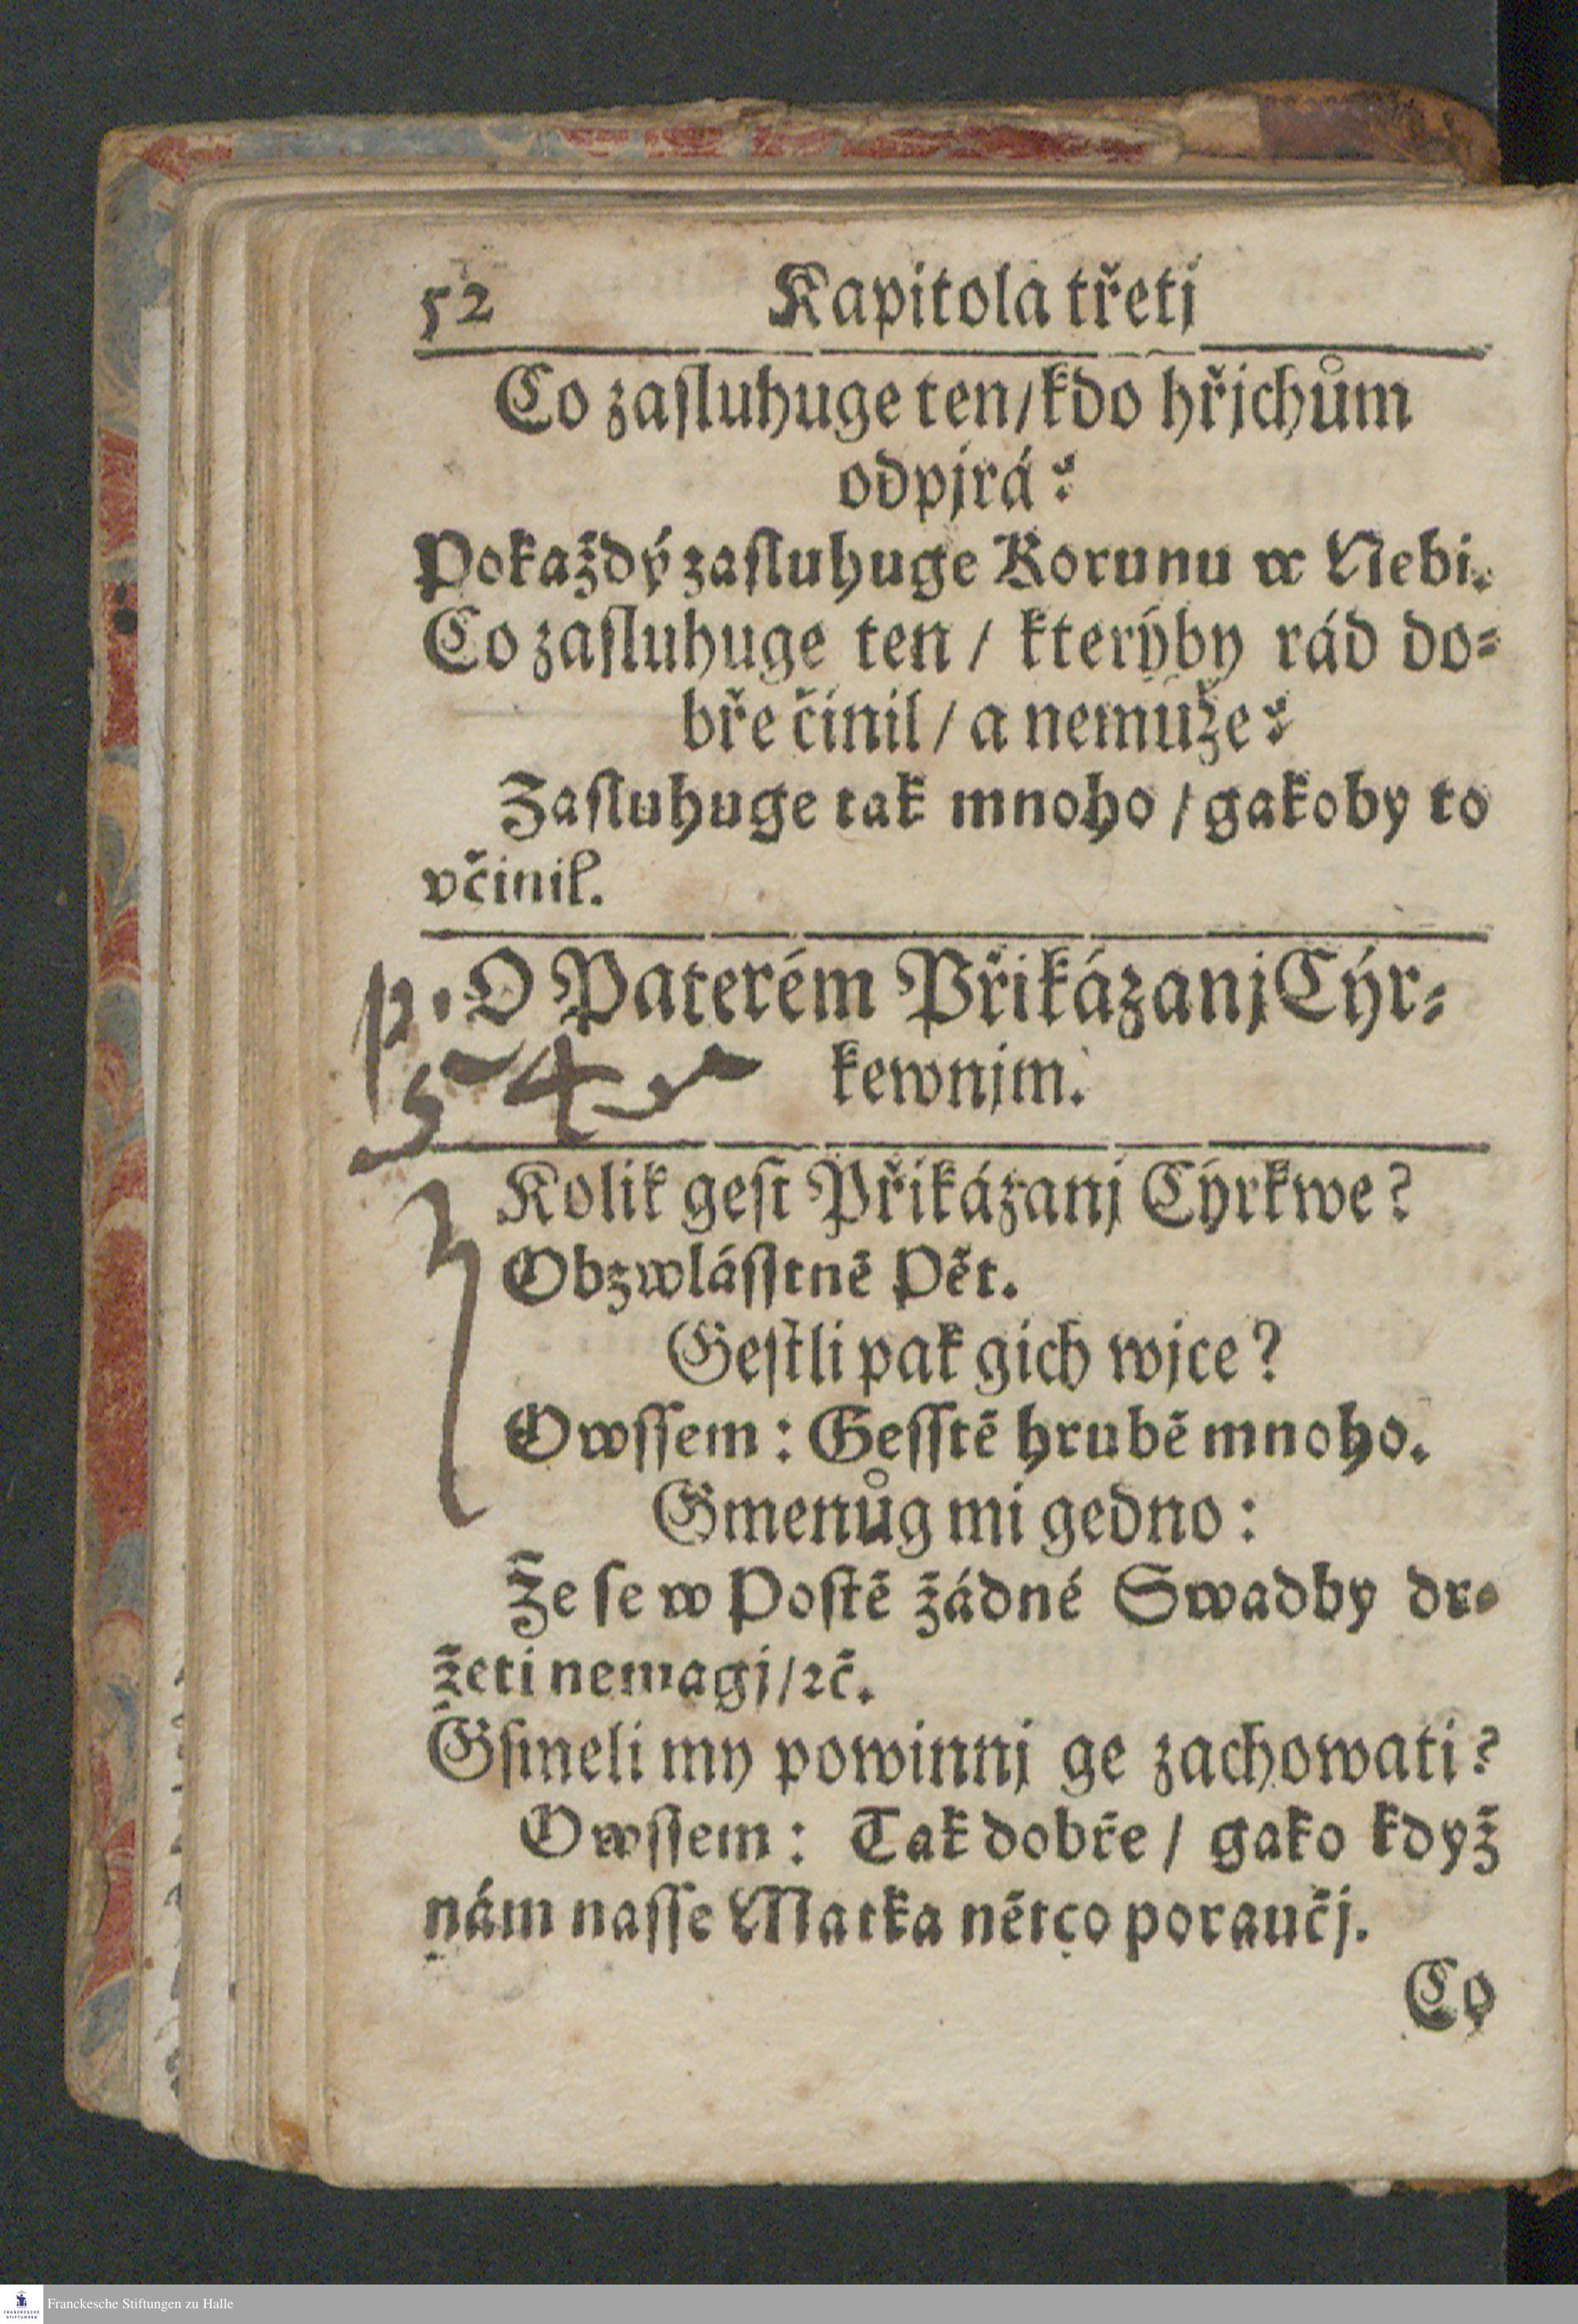 52 Kapitola třetj
Co zaſluhuge ten/ kdo hřjchům
odpjrá?
Pokaždý zaſluhuge Korunu w Nebi.
Co zaſluhuge ten / kterýby rád do=
bře činil / a nemuže?
Zaſluhuge tak mnoho / gakoby to
včinil.
p. O Paterém Přikázanj Cýr=
54 kewnjm.
Kolik geſt Přikázanj Cýrkwe?
Obzwláſſtně Pět.
Geſtli pak gich wjce?
Owſſem: Geſſtě hrubě mnoho.
Gmenůg mi gedno:
Že ſe w Poſtě žádné Swadby dr=
žeti nemagj/ ꝛč.
Gſmeli my powinnj ge zachowati?
Owſſem: Tak dobře / gako když
nám naſſe Matka nětco poraučj.
Co
Franckesche Stiftungen zu Halle
FRANCKESCHE
STIFTUNGEN